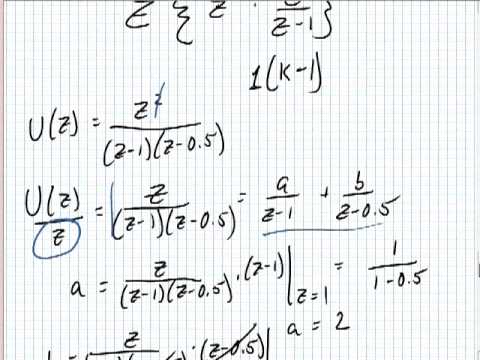 Z { z · /(z-1) }
1(k-1)
U(z) = z²/((z-1)(z-0.5))
U(z)/z = z/((z-1)(z-0.5)) = a/(z-1) + b/(z-0.5)
a = z/((z-1)(z-0.5)) · (z-1) |z=1 = 1/(1-0.5)
a = 2
z/ · (z-0.5) |